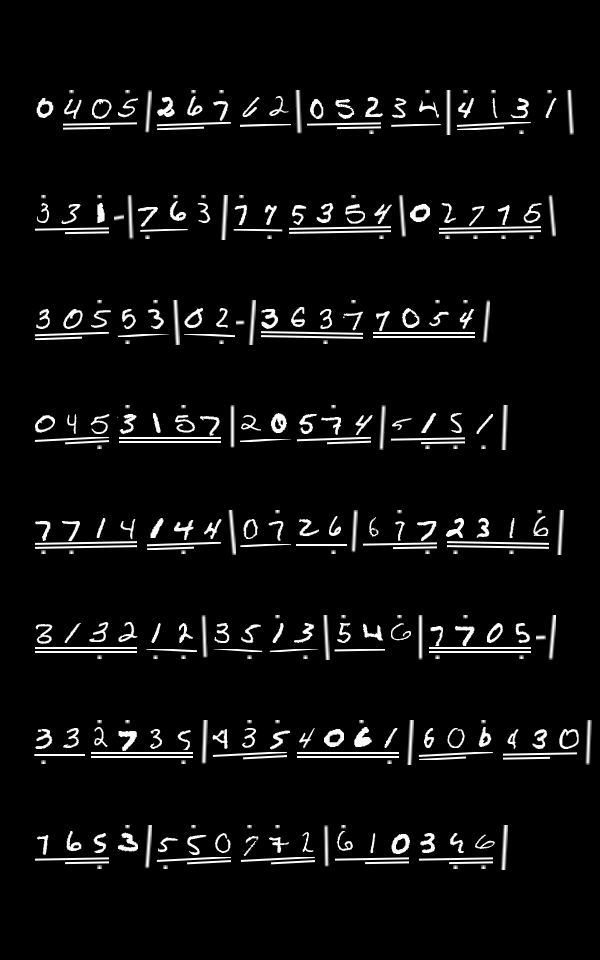 0 4 0 5 | 2 6 7 6 2 | 0 5 2 3 4 | 4 1 3 1 |
3 3 1 - | 7 6 3 | 7 7 5 3 5 4 | 0 2 7 7 5 |
3 0 5 5 3 | 0 2 - | 3 6 3 7 7 0 5 4 |
0 4 5 3 1 5 7 | 2 0 5 7 4 | 5 1 5 1 |
7 7 1 4 1 4 4 | 0 7 2 6 | 6 7 7 2 3 1 6 |
3 1 3 2 1 2 | 3 5 1 3 | 5 4 6 | 7 7 0 5 - |
3 3 2 7 3 5 | 4 3 5 4 0 6 1 | 6 0 6 4 3 0 |
7 6 5 3 | 5 5 0 7 7 2 | 6 1 0 3 4 6 |